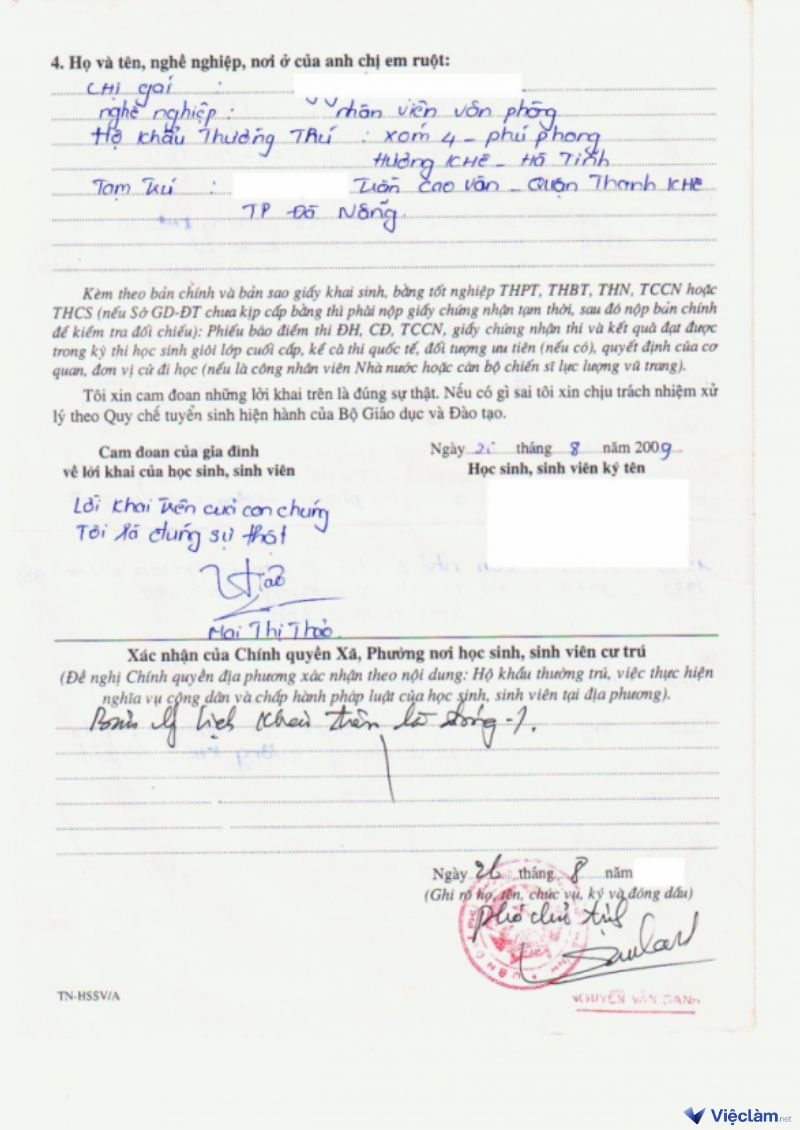 4. Họ và tên, nghề nghiệp, nơi ở của anh chị em ruột:
Chị gái :
nghề nghiệp : nhân viên văn phòng
Hộ khẩu Thường Trú : xóm 4 - phú phong
Hương Khê - Hà Tĩnh
Tạm Trú : Trần Cao Vân - Quận Thanh Khê
TP Đà Nẵng.
Kèm theo bản chính và bản sao giấy khai sinh, bằng tốt nghiệp THPT, THBT, THN, TCCN hoặc
THCS (nếu Sở GD-ĐT chưa kịp cấp bằng thì phải nộp giấy chứng nhận tạm thời, sau đó nộp bản chính
để kiểm tra đối chiếu): Phiếu báo điểm thi ĐH, CĐ, TCCN, giấy chứng nhận thi và kết quả đạt được
trong kỳ thi học sinh giỏi lớp cuối cấp, kể cả thi quốc tế, đối tượng ưu tiên (nếu có), quyết định của cơ
quan, đơn vị cử đi học (nếu là công nhân viên Nhà nước hoặc cán bộ chiến sĩ lực lượng vũ trang).
Tôi xin cam đoan những lời khai trên là đúng sự thật. Nếu có gì sai tôi xin chịu trách nhiệm xử
lý theo Quy chế tuyển sinh hiện hành của Bộ Giáo dục và Đào tạo.
Cam đoan của gia đình
về lời khai của học sinh, sinh viên
Ngày tháng 8 năm 2009
Học sinh, sinh viên ký tên
Lời khai trên của con chúng
Tôi là đúng sự thật
Thảo
Mai Thị Thảo
Xác nhận của Chính quyền Xã, Phường nơi học sinh, sinh viên cư trú
(Đề nghị Chính quyền địa phương xác nhận theo nội dung: Hộ khẩu thường trú, việc thực hiện
nghĩa vụ công dân và chấp hành pháp luật của học sinh, sinh viên tại địa phương).
Bản lý lịch khai trên là đúng -/.
Ngày 26 tháng 8 năm
(Ghi rõ họ, tên, chức vụ, ký và đóng dấu)
Phó chủ tịch
TN-HSSV/A
NGUYỄN VĂN DANH
Việclàm.net